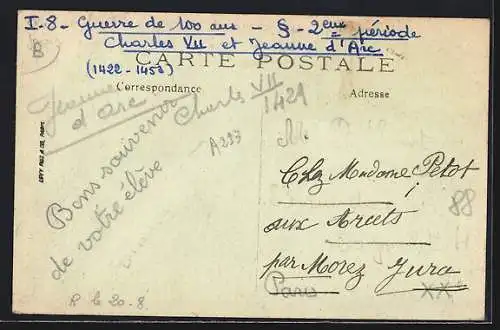 I-8- Guerre de 100 ans - § - 2eme période
Charles VII et Jeanne d'Arc
(1422-1453)
B
CARTE POSTALE
Correspondance
Adresse
Jeanne
d'Arc
Charles VII
1429
A227
LÉVY FILS & CIE, PARIS
Bons souvenirs
de votre élève
R. le 20-8.
Chez Madame Petot
aux Arcets
par Morez Jura
Paris
88
XX